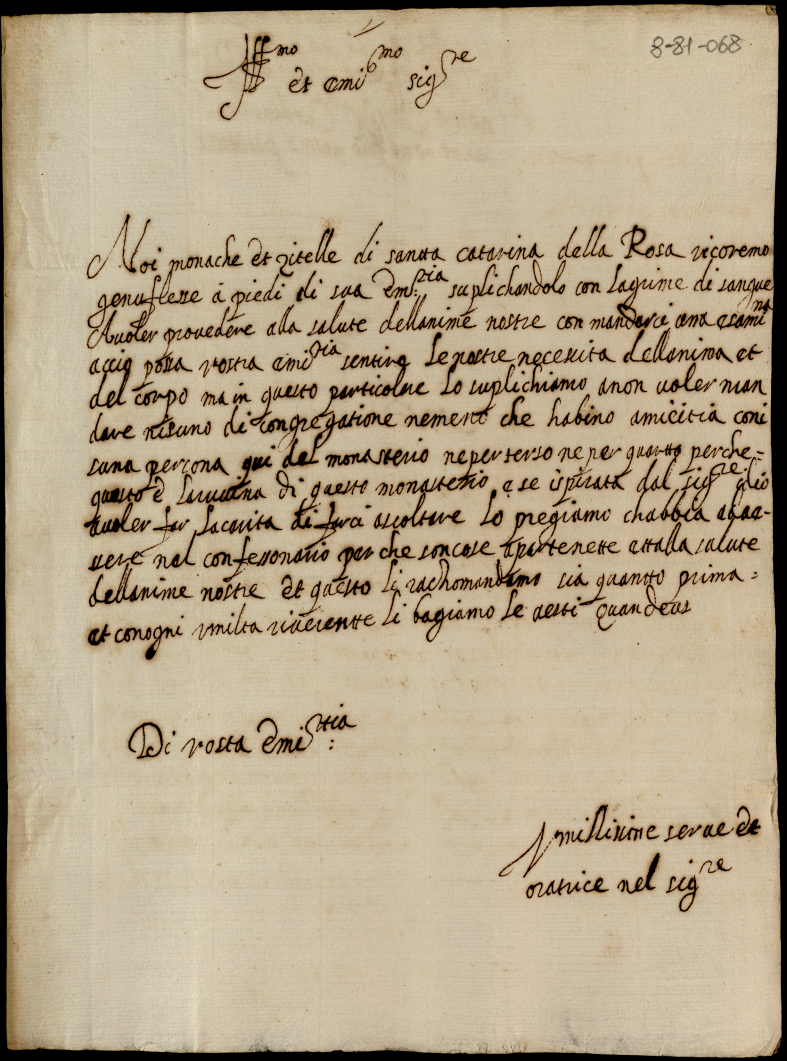 8-81-068
Ill^mo et emi^mo sig^re
Noi monache et zitelle di santta catarina della Rosa ricoremo
genuflesse à piedi di sua Em^tia suplichandolo con lagrime di sangue
Avoler provedere alla salute dellanime nostre con mandarci una esami^na
accio possa vostra emi^tia sentire le nostre necessita dellanima et
del corpo ma in questo particolare lo suplichiamo anon voler man
dare nisuno di congregatione nemeno che habino amicitia coni
suna percona qui del monasterio neperterso neper quarto perche=
questo è laruvina di questo monasterio e se ispirata dal sig^re dio
avoler far lacarita di farci ascoltare lo pregiamo chabbia
sere nel confessonario perche soncose apartenette attalla salute
dellanime nostre et questo li rachomandamo sia quantto prima=
et conogni umilta riverentte li bagiamo le vesti Quam deus
Di vosta Emi^ttia:
Umillisime serve et
oratrice nel sig^re